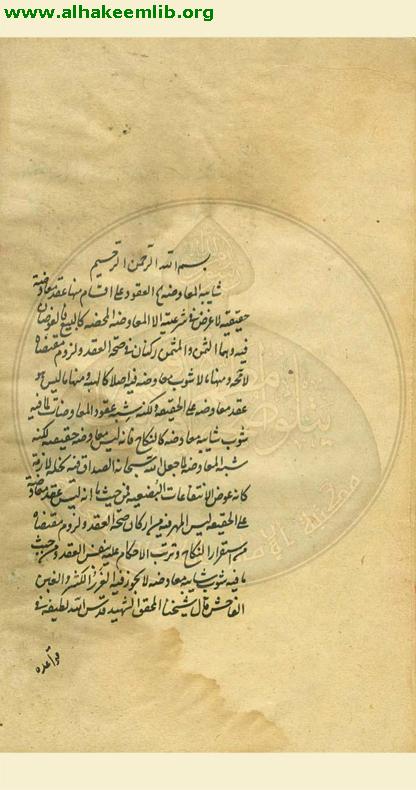 www.alhakeemlib.org
بسم الله الرحمن الرحيم
شايبة المعاوضة في العقود على اقسام منها عقد معاوضة
حقيقية لا غرض في شرعيته الا المعاوضة المحضة كالبيع فالعوضان
فيه وهما الثمن والمثمن ركنان في صحة العقد ولزوم مقتضاه
ومنها ما لا شوب معاوضة فيه اصلا كالهبة ومنها ما ليس هو
عقد معاوضة على الحقيقة ولكنه يشبه عقود المعاوضات لما فيه
شوب شايبة معاوضة كالنكاح فانه ليس معاوضة حقيقية لكنه
شبه المعاوضة لما جعل الله سبحانه الصداق فيه نحلة لازمة
كانه عوض الانتفاعات البضعية فمن حيث انه ليس عقد معاوضة
على الحقيقة ليس المهر فيه من اركان صحة العقد ولزوم مقتضاه
من استقرار النكاح وترتب الاحكام عليه بنفس العقد ومن حيث
ما فيه شوب شايبة معاوضة لا يجوز فيه الغرر الكثير والغبن
الفاحش قال شيخنا المحقق الشهيد قدس الله لطيفه في
قواعده